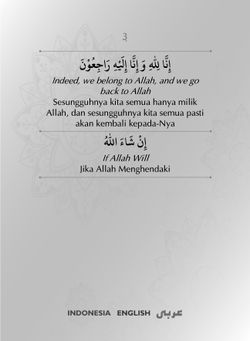 3
إِنَّا لِلّٰهِ وَ إِنَّا إِلَيْهِ رَاجِعُوْنَ
Indeed, we belong to Allah, and we go
back to Allah
Sesungguhnya kita semua hanya milik
Allah, dan sesungguhnya kita semua pasti
akan kembali kepada-Nya
إِنْ شَاءَ اللّٰهُ
If Allah Will
Jika Allah Menghendaki
INDONESIA ENGLISH عربي